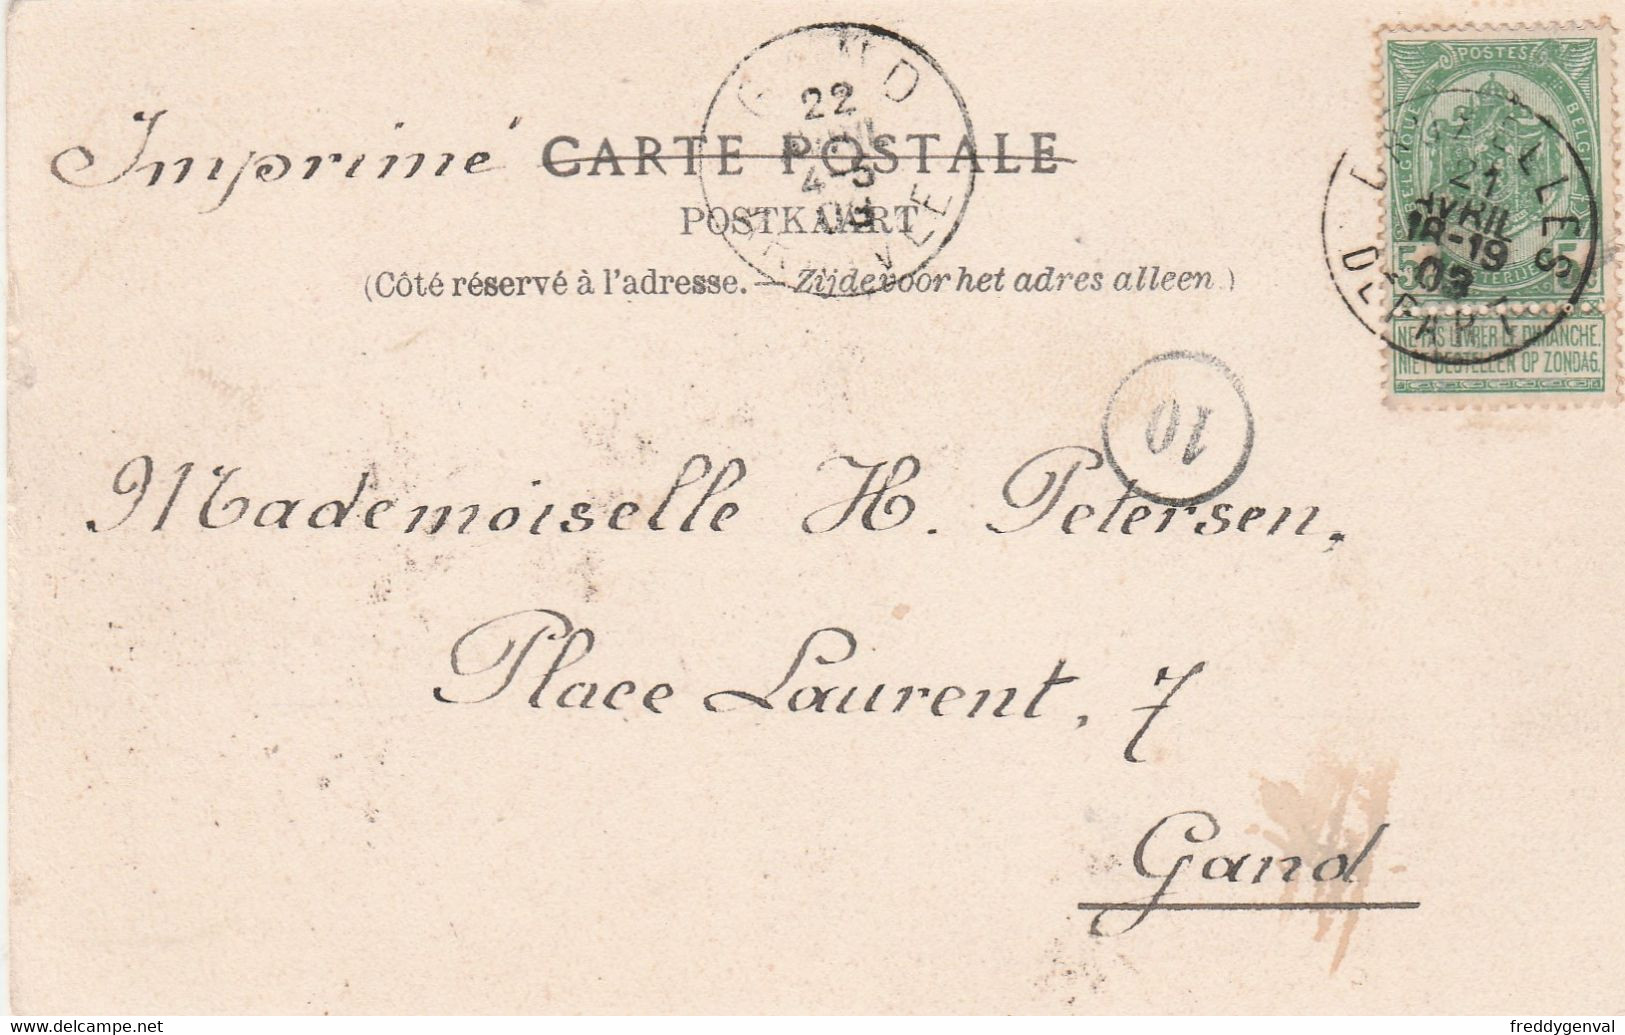 Imprimé CARTE POSTALE
POSTKAART
(Côté réservé à l'adresse. — Zijde voor het adres alleen.)
GAND
22
4-5
ARRIVÉE
POSTES
BELGIQUE
BELGIË
BRUXELLES
21
AVRIL
18-19
03
DÉPART
5 5
NE PAS LIVRER LE DIMANCHE.
NIET BESTELLEN OP ZONDAG.
10
Mademoiselle H. Petersen,
Place Laurent, 7
Gand
http://www.delcampe.net
freddygenval